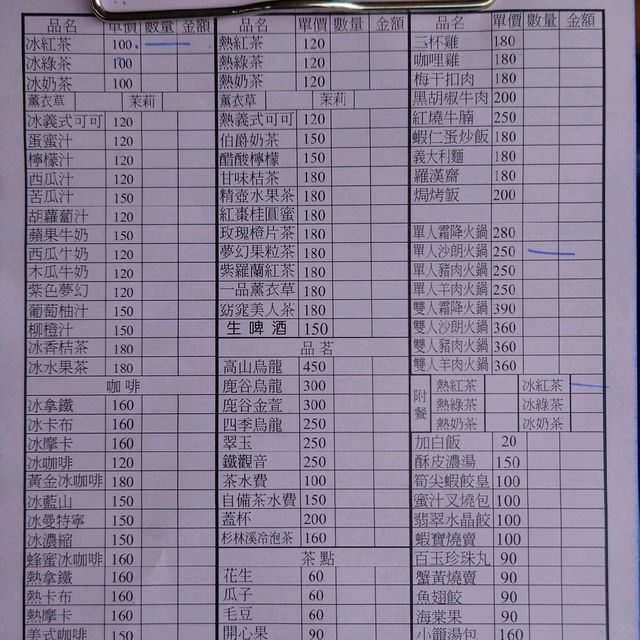 品名 單價 數量 金額
冰紅茶 100
冰綠茶 100
冰奶茶 100
薰衣草 茉莉
冰義式可可 120
蛋蜜汁 120
檸檬汁 120
西瓜汁 120
苦瓜汁 150
胡蘿蔔汁 120
蘋果牛奶 150
西瓜牛奶 120
木瓜牛奶 120
紫色夢幻 120
葡萄柚汁 150
柳橙汁 150
冰香桔茶 180
冰水果茶 180
咖啡
冰拿鐵 160
冰卡布 160
冰摩卡 160
冰咖啡 120
黃金冰咖啡 180
冰藍山 150
冰曼特寧 150
冰濃縮 150
蜂蜜冰咖啡 160
熱拿鐵 160
熱卡布 160
熱摩卡 160
美式咖啡 150
品名 單價 數量 金額
熱紅茶 120
熱綠茶 120
熱奶茶 120
薰衣草 茉莉
熱義式可可 120
伯爵奶茶 150
醋酸檸檬 150
甘味桔茶 180
精壺水果茶 180
紅棗桂圓蜜 180
玫瑰橙片茶 180
夢幻果粒茶 180
紫羅蘭紅茶 180
一品薰衣草 180
窈窕美人茶 180
生啤酒 150
品茗
高山烏龍 450
鹿谷烏龍 300
鹿谷金萱 300
四季烏龍 250
翠玉 250
鐵觀音 250
茶水費 100
自備茶水費 150
蓋杯 200
杉林溪冷泡茶 160
茶點
花生 60
瓜子 60
毛豆 60
開心果 90
品名 單價 數量 金額
三杯雞 180
咖哩雞 180
梅干扣肉 180
黑胡椒牛肉 200
紅燒牛腩 250
蝦仁蛋炒飯 180
義大利麵 180
羅漢齋 180
焗烤飯 200
單人霜降火鍋 280
單人沙朗火鍋 250
單人豬肉火鍋 250
單人羊肉火鍋 250
雙人霜降火鍋 390
雙人沙朗火鍋 360
雙人豬肉火鍋 360
雙人羊肉火鍋 360
附餐
熱紅茶 冰紅茶
熱綠茶 冰綠茶
熱奶茶 冰奶茶
加白飯 20
酥皮濃湯 150
筍尖蝦餃皇 100
蜜汁叉燒包 100
翡翠水晶餃 100
蝦寶燒賣 100
百玉珍珠丸 90
蟹黃燒賣 90
魚翅餃 90
海棠果 90
小籠湯包 160